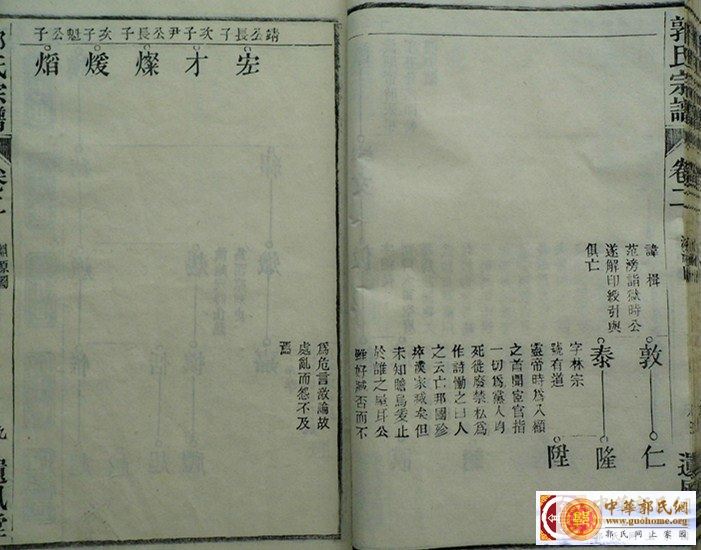 郭氏宗譜
卷二
諱楫
范滂詣獄時公
遂解印綬引與
俱亡
敦
仁
泰
隆
字林宗
號有道
靈帝時爲八顧
之首閹宦官指
一切爲黨人均
死徙廢禁私爲
作詩慟之曰人
之云亡邦國殄
瘁漢家滅矣但
未知瞻烏爰止
於誰之屋耳公
雖好臧否而不
陞
靖公長子
次子
尹公長子
次子
魁公子
宏
才
燦
煖
熖
爲危言激論故
處亂而怨不及
焉
郭氏宗譜
卷二
淵源圖
九
遺風堂
中華郭氏網
www.guohome.org
郭氏网上家园